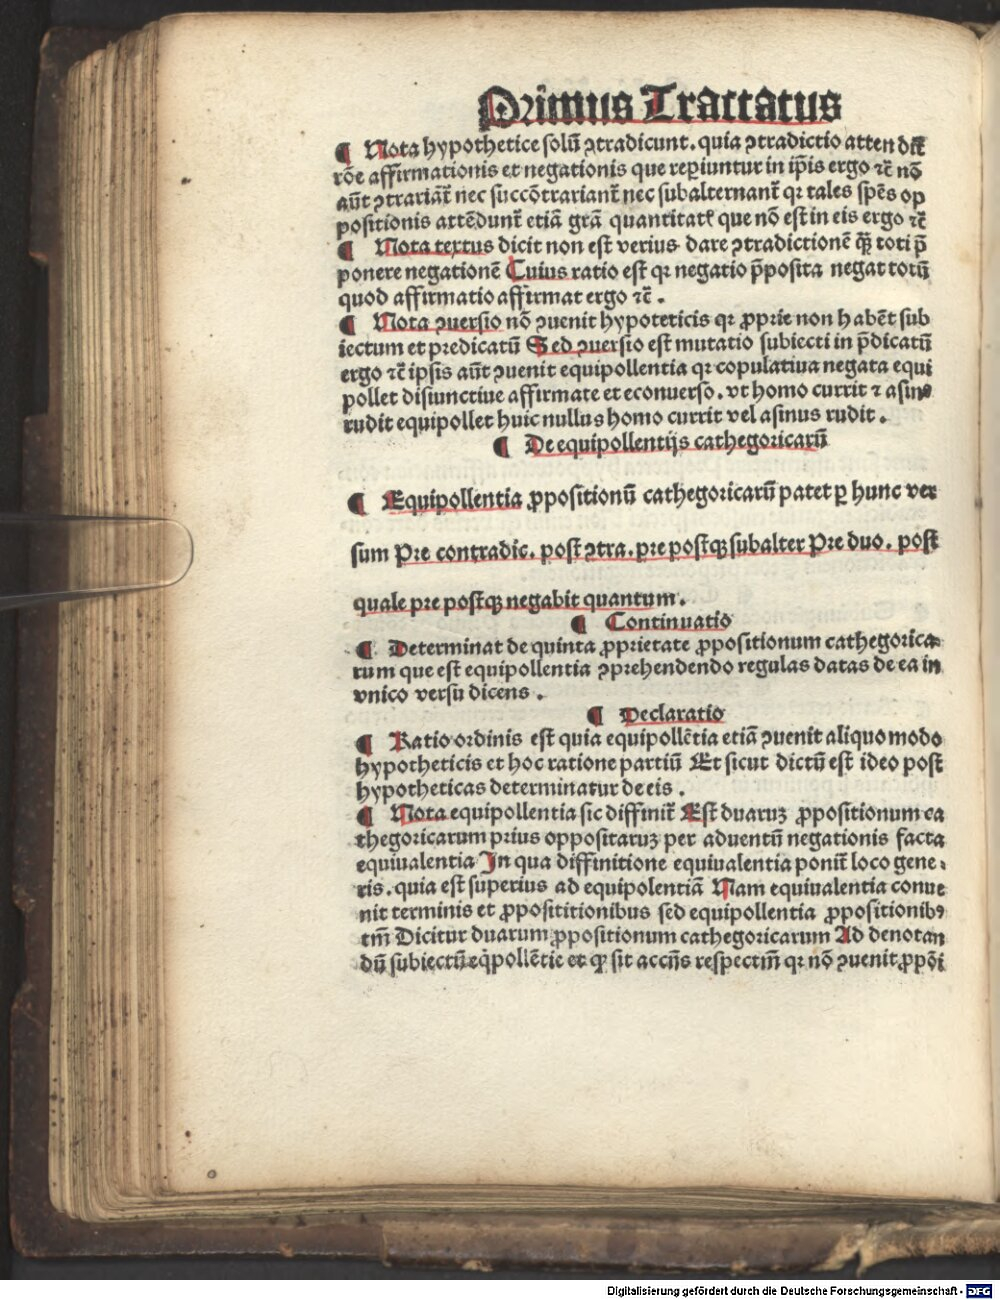 Primus Tractatus
¶ Nota hypothetice solũ ꝯtradicunt. quia ꝯtradictio attendit̃
rõe affirmationis et negationis que reꝑiuntur in ip̃is ergo ⁊c̃ nõ
aũt ꝯtrariãt̃ nec succõtrariant̃ nec subalternant̃ qꝛ tales sp̃es op
positionis attẽdunt̃ etiã grã quantitatꝭ que nõ est in eis ergo ⁊c̃
¶ Nota textus dicit non est verius dare ꝯtradictionẽ q̃ꝫ toti p̃
ponere negationẽ Cuius ratio est qꝛ negatio p̃posita negat totũ
quod affirmatio affirmat ergo ⁊c̃.
¶ Nota ꝯuersio nõ ꝯuenit hypoteticis qꝛ ꝓprie non habẽt sub
iectum et predicatũ Sed ꝯuersio est mutatio subiecti in p̃dicatũ
ergo ⁊c̃ ipsis aũt ꝯuenit equipollentia qꝛ copulatiua negata equi
pollet disiunctiue affirmate et econuerso. vt homo currit ⁊ asinꝰ
rudit equipollet huic nullus homo currit vel asinus rudit.
¶ De equipollentijs cathegoricarũ
¶ Equipollentia ꝓpositionũ cathegoricarũ patet ꝑ hunc ver
sum Pre contradic. post ꝯtra. pre postqꝫ subalter Pre duo. post
quale pre postqꝫ negabit quantum.
¶ Continuatio
¶ Determinat de quinta ꝓprietate ꝓpositionum cathegorica
rum que est equipollentia ꝯprehendendo regulas datas de ea in
vnico versu dicens.
¶ Declaratio
¶ Ratio ordinis est quia equipollẽtia etiã ꝯuenit aliquo modo
hypotheticis et hoc ratione partiũ Et sicut dictũ est ideo post
hypotheticas determinatur de eis.
¶ Nota equipollentia sic diffinit̃ Est duaruꝫ ꝓpositionum ca
thegoricarum prius oppositaruꝫ per aduentũ negationis facta
equiualentia In qua diffinitione equiualentia ponit̃ loco gene
ris. quia est superius ad equipolentiã Nam equiualentia conue
nit terminis et ꝓposititionibus sed equipollentia ꝓpositionibꝰ
tm̃ Dicitur duarum ꝓpositionum cathegoricarum Ad denotan
dũ subiectũ eq̇pollẽtie et ꝙ sit accñs respectiũ qꝛ nõ ꝯuenit ꝓpõi
Digitalisierung gefördert durch die Deutsche Forschungsgemeinschaft - DFG